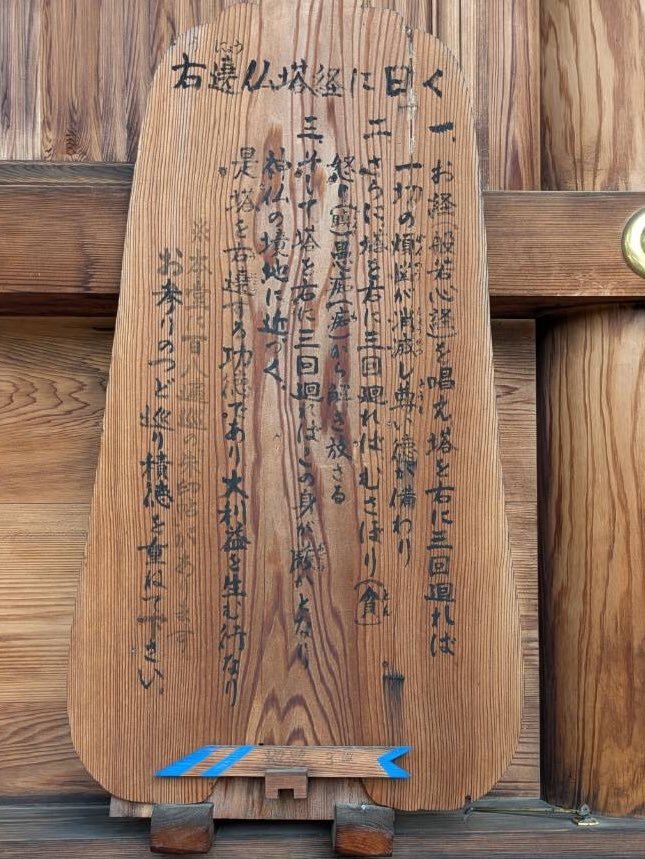 右遶仏塔経に曰く
一、お経(般若心経)を唱え塔を右に三回廻れば
一切の煩悩が消滅し尊い徳が備わり
二、さらに塔を右に三回廻ればむさぼり(貪)
怒り(瞋)愚痴(痴)から解き放さる
三、 塔を右に三回廻ればこの身が となり
神仏の境地に近づく。
是塔を右遶する功徳であり大利益を生む行なり
※本堂に百八遍巡の朱印帖があります
お参りのつど巡り積徳を重ねて下さい。